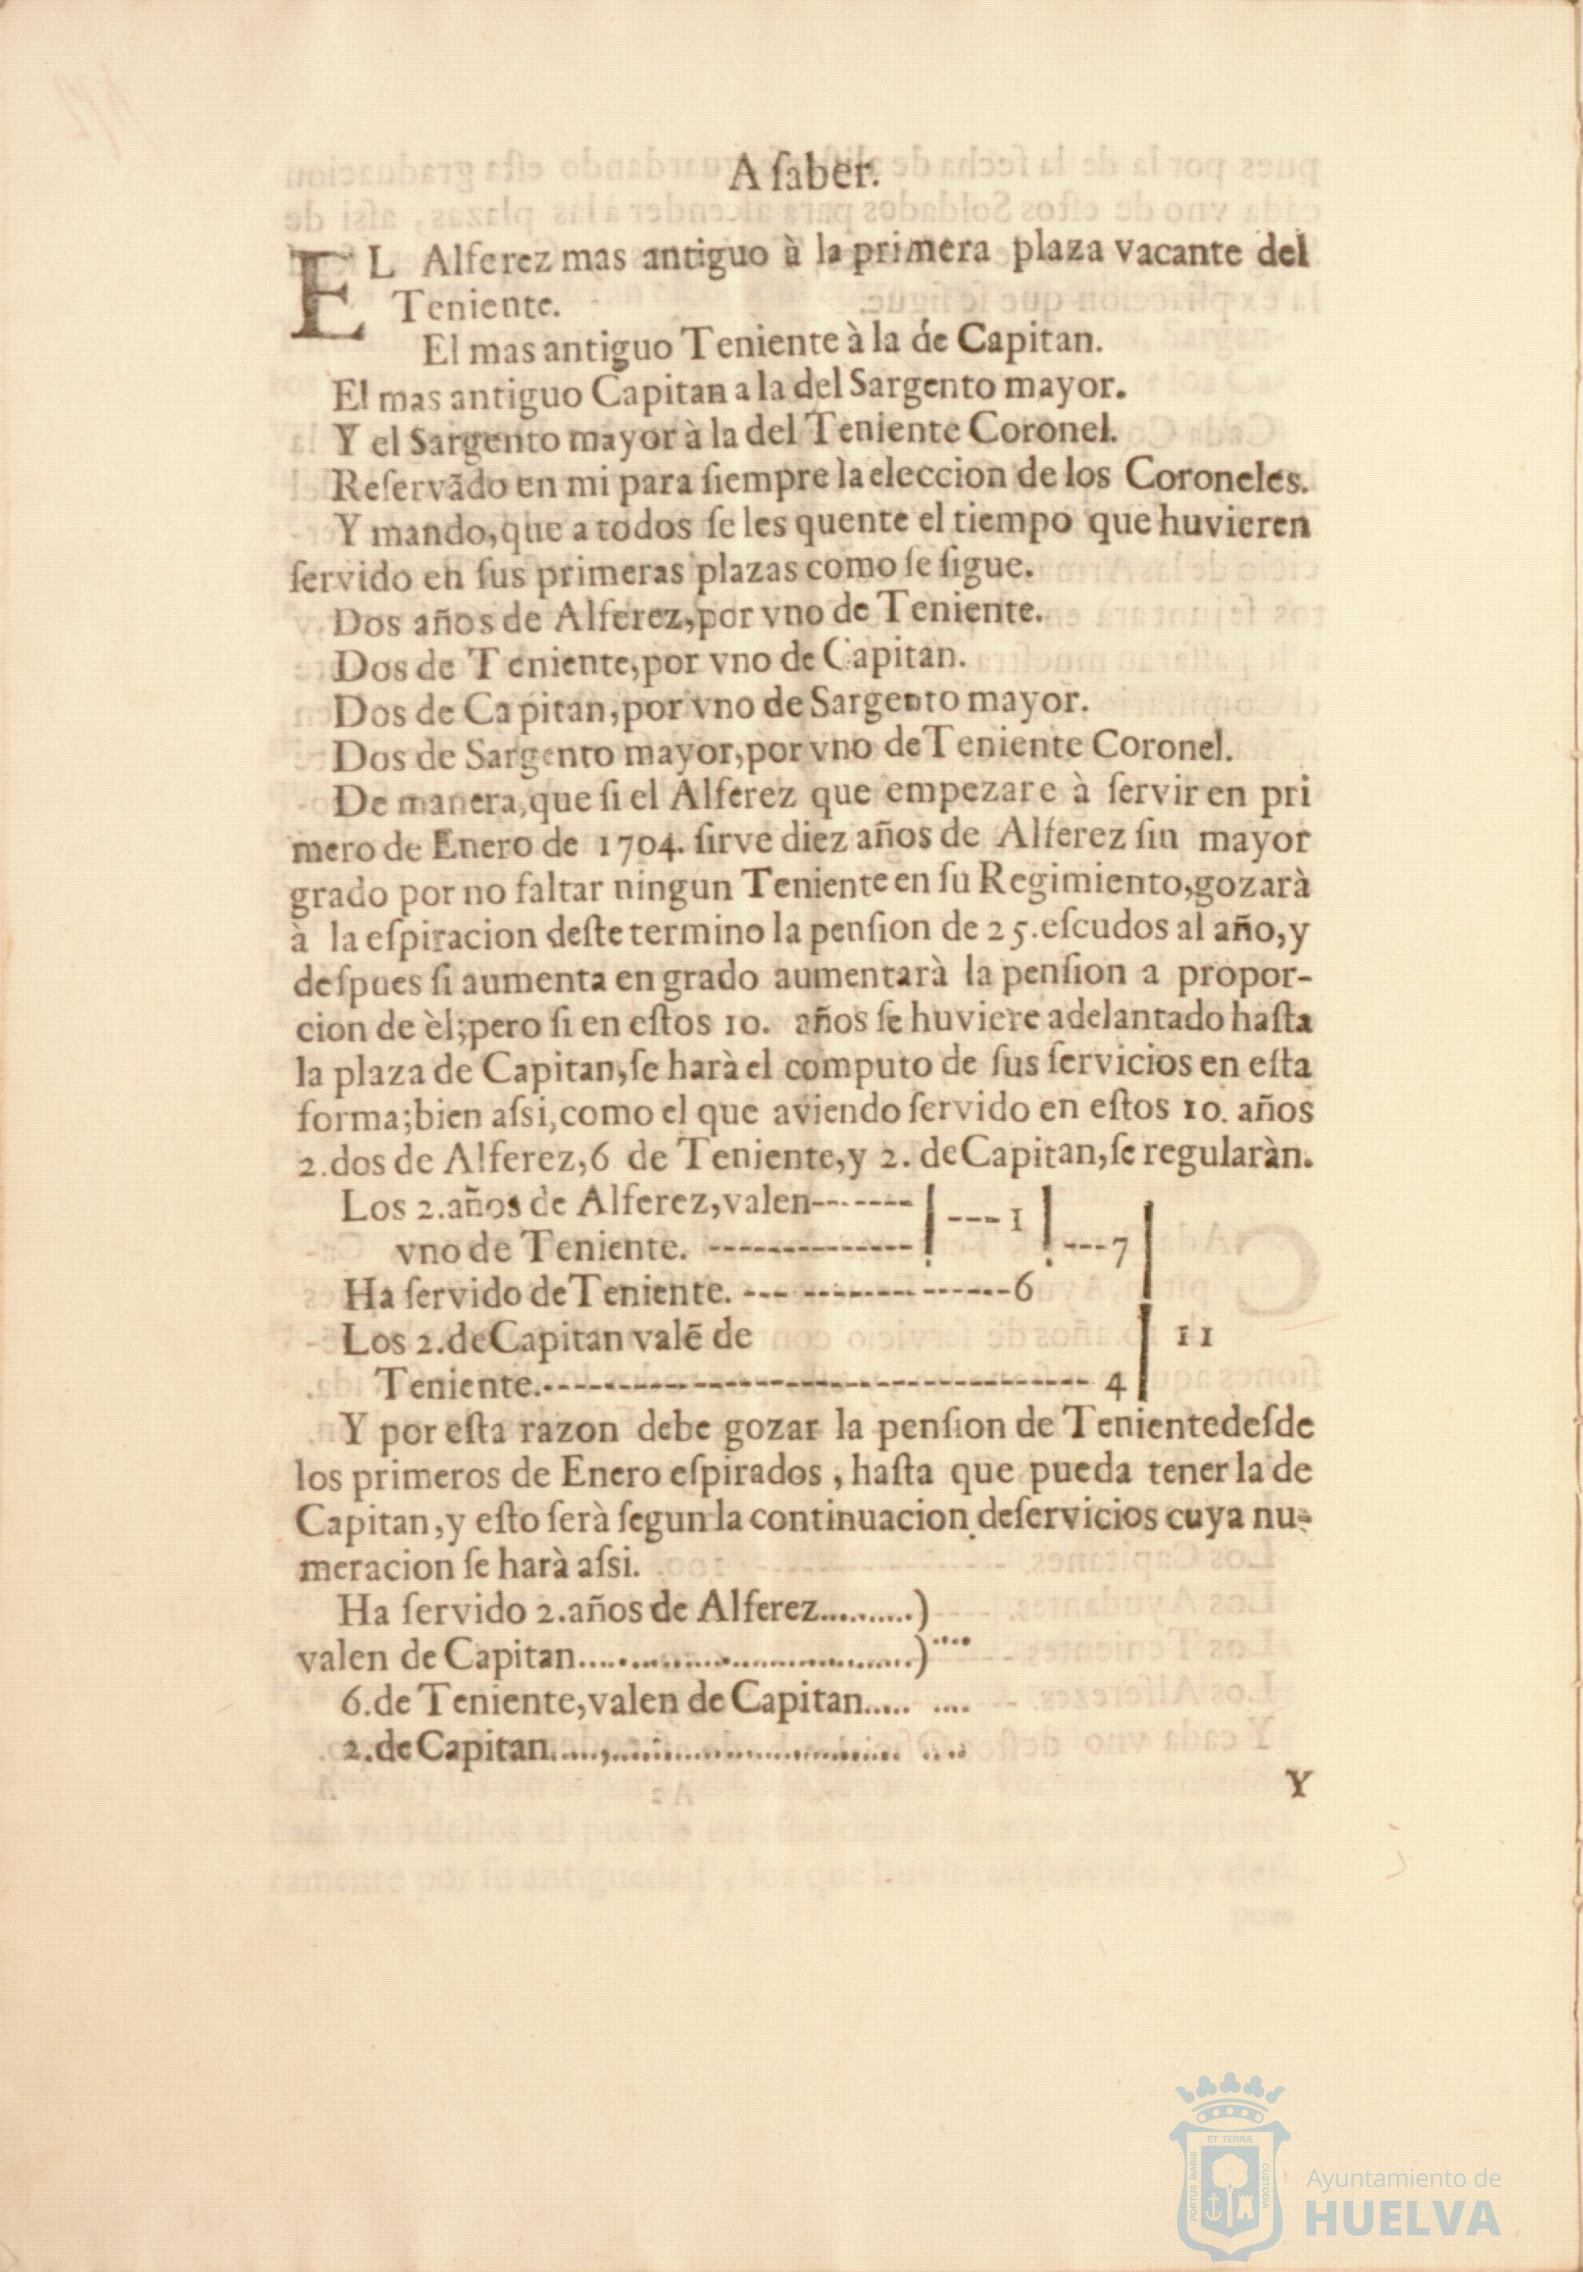 A ſaber.
EL Alferez mas antiguo à la primera plaza vacante del
Teniente.
El mas antiguo Teniente à la de Capitan.
El mas antiguo Capitan a la del Sargento mayor.
Y el Sargento mayor à la del Teniente Coronel.
Reſervãdo en mi para ſiempre la eleccion de los Coroneles.
Y mando, que a todos ſe les quente el tiempo que huvieren
ſervido en ſus primeras plazas como ſe ſigue.
Dos años de Alferez, por vno de Teniente.
Dos de Teniente, por vno de Capitan.
Dos de Capitan, por vno de Sargento mayor.
Dos de Sargento mayor, por vno de Teniente Coronel.
De manera, que ſi el Alferez que empezare à ſervir en pri
mero de Enero de 1704. ſirve diez años de Alferez ſin mayor
grado por no faltar ningun Teniente en ſu Regimiento, gozarà
à la eſpiracion deſte termino la penſion de 25. eſcudos al año, y
deſpues ſi aumenta en grado aumentarà la penſion a propor-
cion de èl; pero ſi en eſtos 10. años ſe huviere adelantado haſta
la plaza de Capitan, ſe harà el computo de ſus ſervicios en eſta
forma; bien aſsi, como el que aviendo ſervido en eſtos 10. años
2. dos de Alferez, 6 de Teniente, y 2. de Capitan, ſe regularàn.
Los 2. años de Alferez, valen------- | ---1 |
vno de Teniente. -------------- | | ---7 |
Ha ſervido de Teniente. --- -------- ------6
Los 2. de Capitan valẽ de | 11
Teniente.---------------------------------- 4 |
Y por eſta razon debe gozar la penſion de Teniente deſde
los primeros de Enero eſpirados, haſta que pueda tener la de
Capitan, y eſto ſerà ſegun la continuacion de ſervicios cuya nu-
meracion ſe harà aſsi.
Ha ſervido 2. años de Alferez..........)
valen de Capitan..............................) ....
6. de Teniente, valen de Capitan..... ....
2. de Capitan................................ ....
Y
ET TERRÆ
PORTUS MARIS
CUSTODIA
Ayuntamiento de
HUELVA